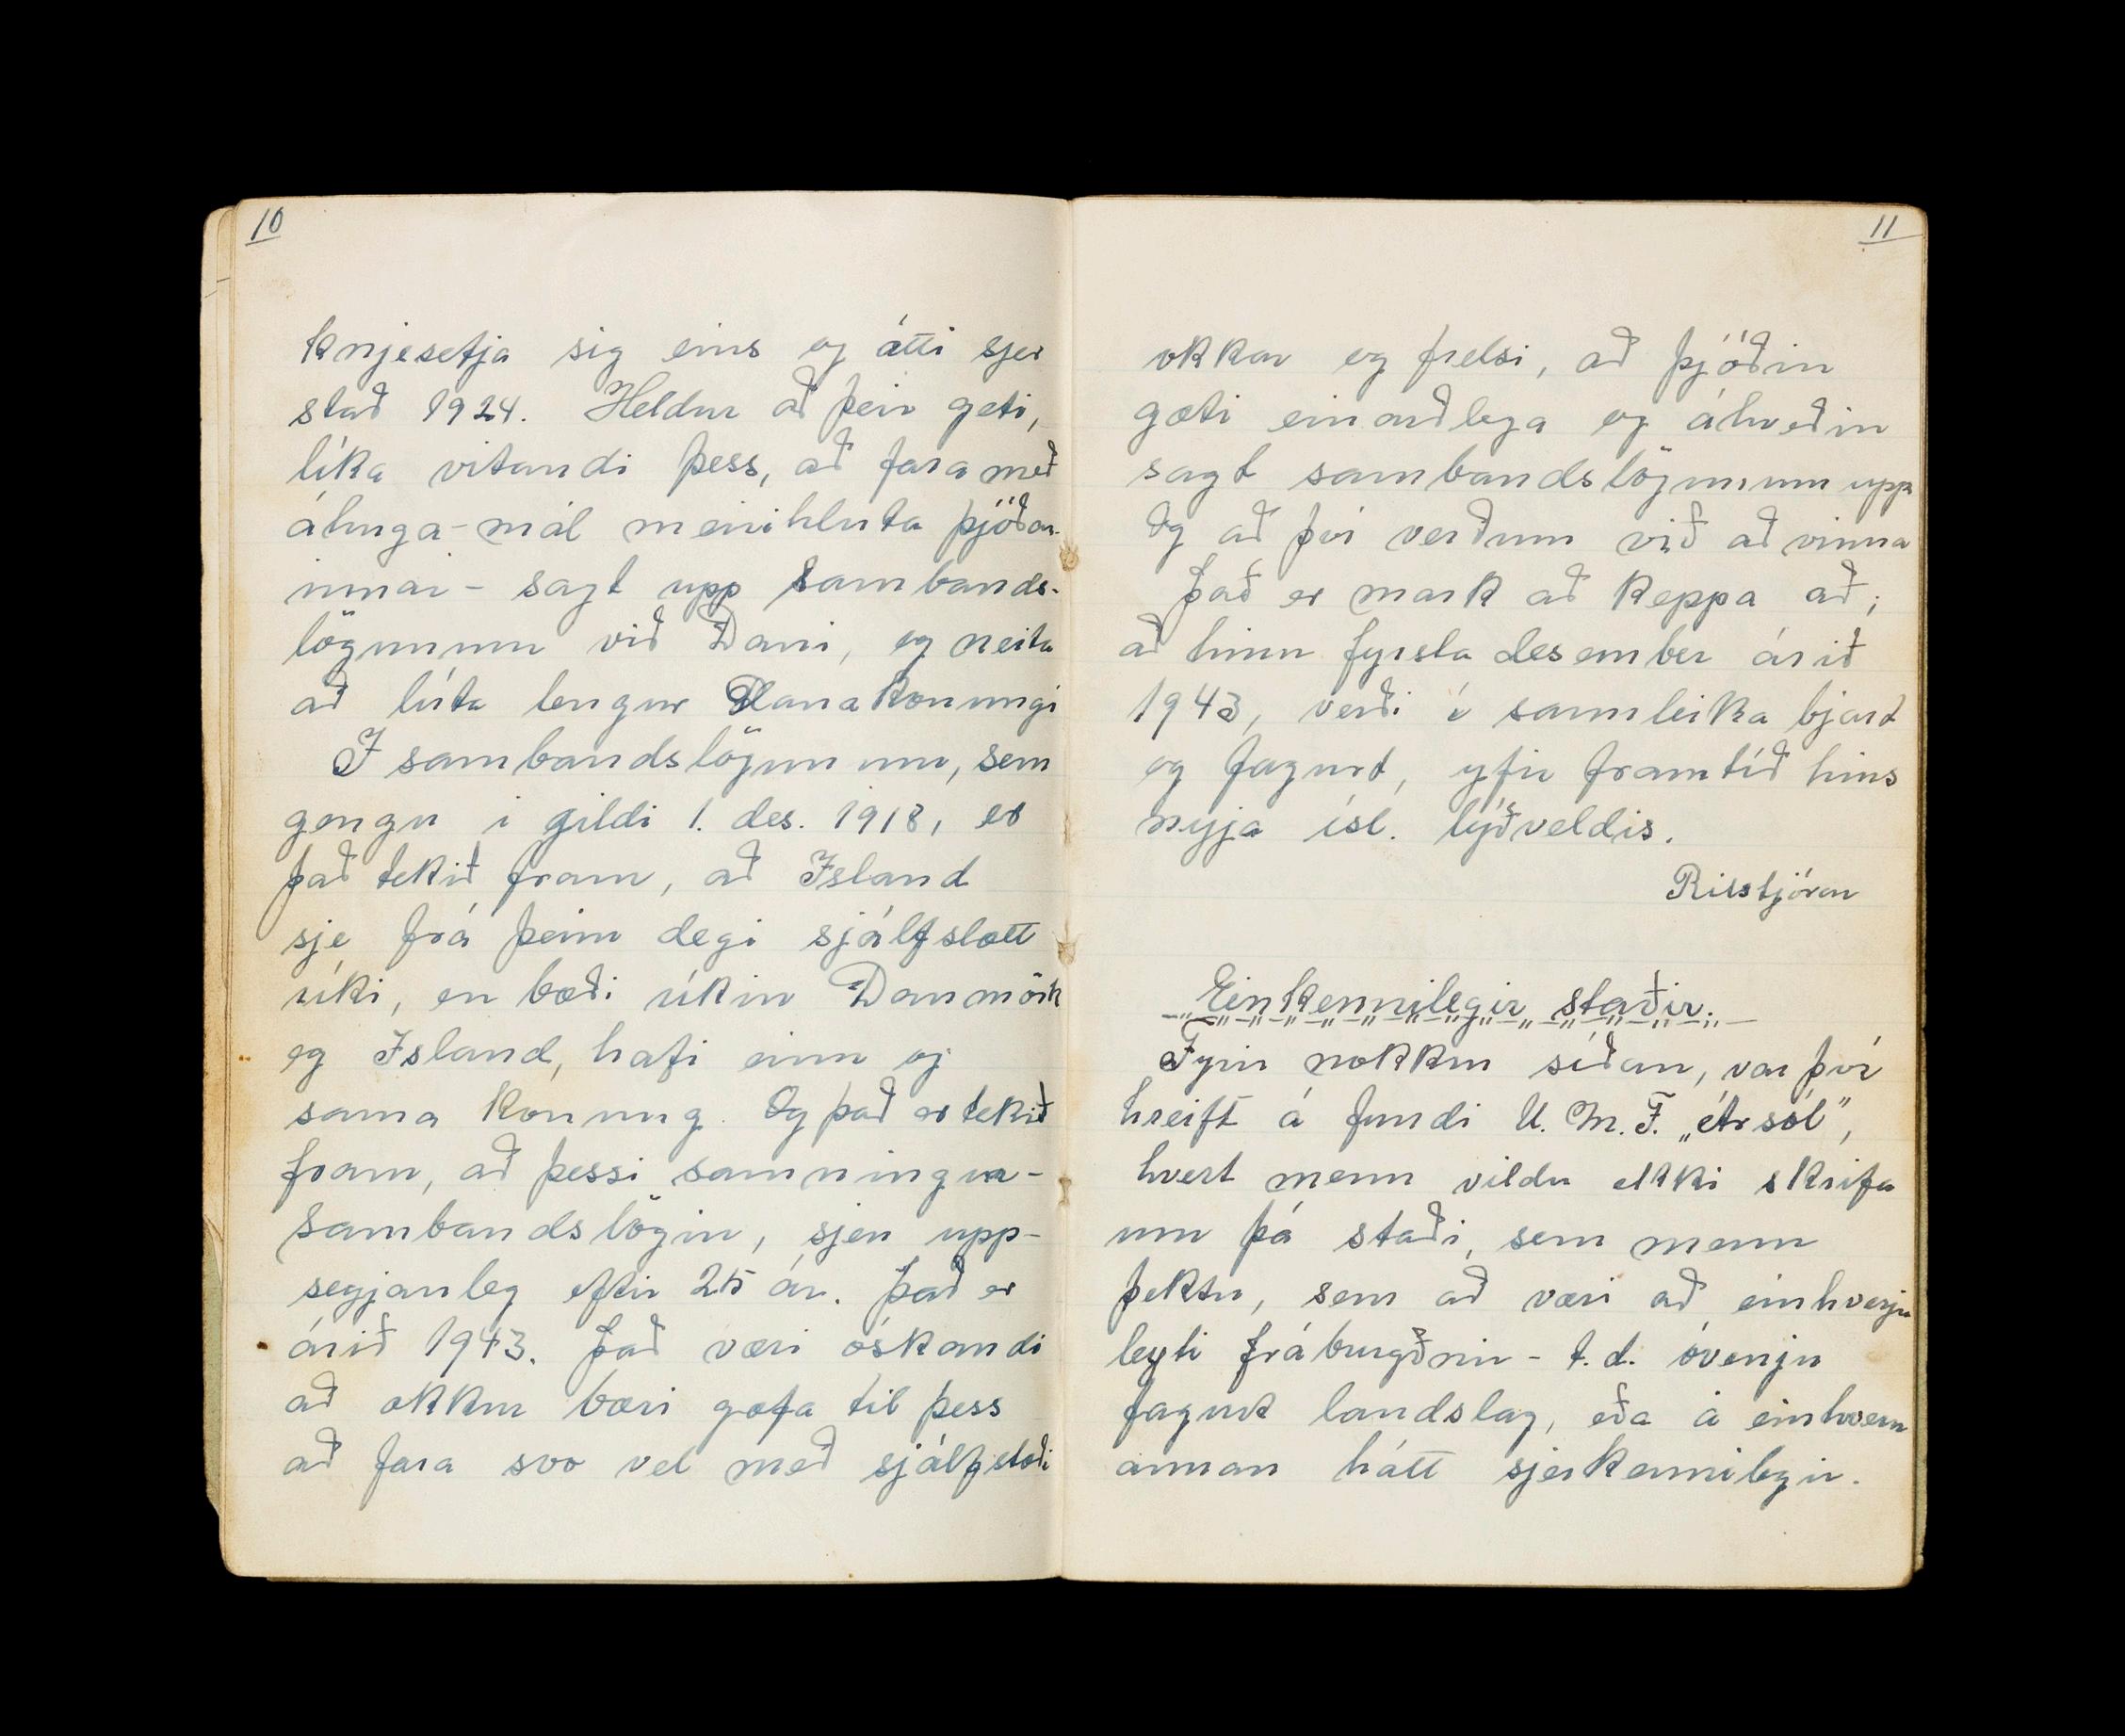 10
knjesetja sig eins og átti sjer
stað 1924. Heldur að þeir geti,
líka vitandi þess, að fara með
áhuga-mál meirihluta þjóðar-
innar - sagt upp sambands-
lögunum við Dani, og neita
að lúta lengur Danakonungi
I sambandslögunum, sem
gengu i gildi 1. des. 1918, er
það tekið fram, að Island
sje frá þeim degi sjálfstætt
ríki, en bæði ríkin Danmörk
og Island, hafi einn og
sama konung. Og það er tekið
fram, að þessi samningur-
sambandslögin, sjeu upp-
segjanleg eftir 25 ár. Það er
árið 1943. Það væri óskandi
að okkur bæri gæfa til þess
að fara svo vel með sjálfstæði
11
okkar og frelsi, að þjóðin
gæti einarðlega og ákveðin
sagt sambandslögunum upp
Og að því verðum við að vinna
Það er mark að keppa að;
að hinn fyrsta desember árið
1943, verði í sannleika bjart
og fagurt, yfir framtíð hins
nyja ísl. lýðveldis.
Ritstjóran
Einkennilegir staðir.
Fyrir nokkru síðan, var því
hreift á fundi U.M.F. „Ársól",
hvert menn vildu ekki skrifa
um þá staði, sem menn
þektu, sem að væri að einhverju
leyti frábrugðnir - t.d. óvenju
fagurt landslag, eða á einhvern
annan hátt sjerkennilegir.